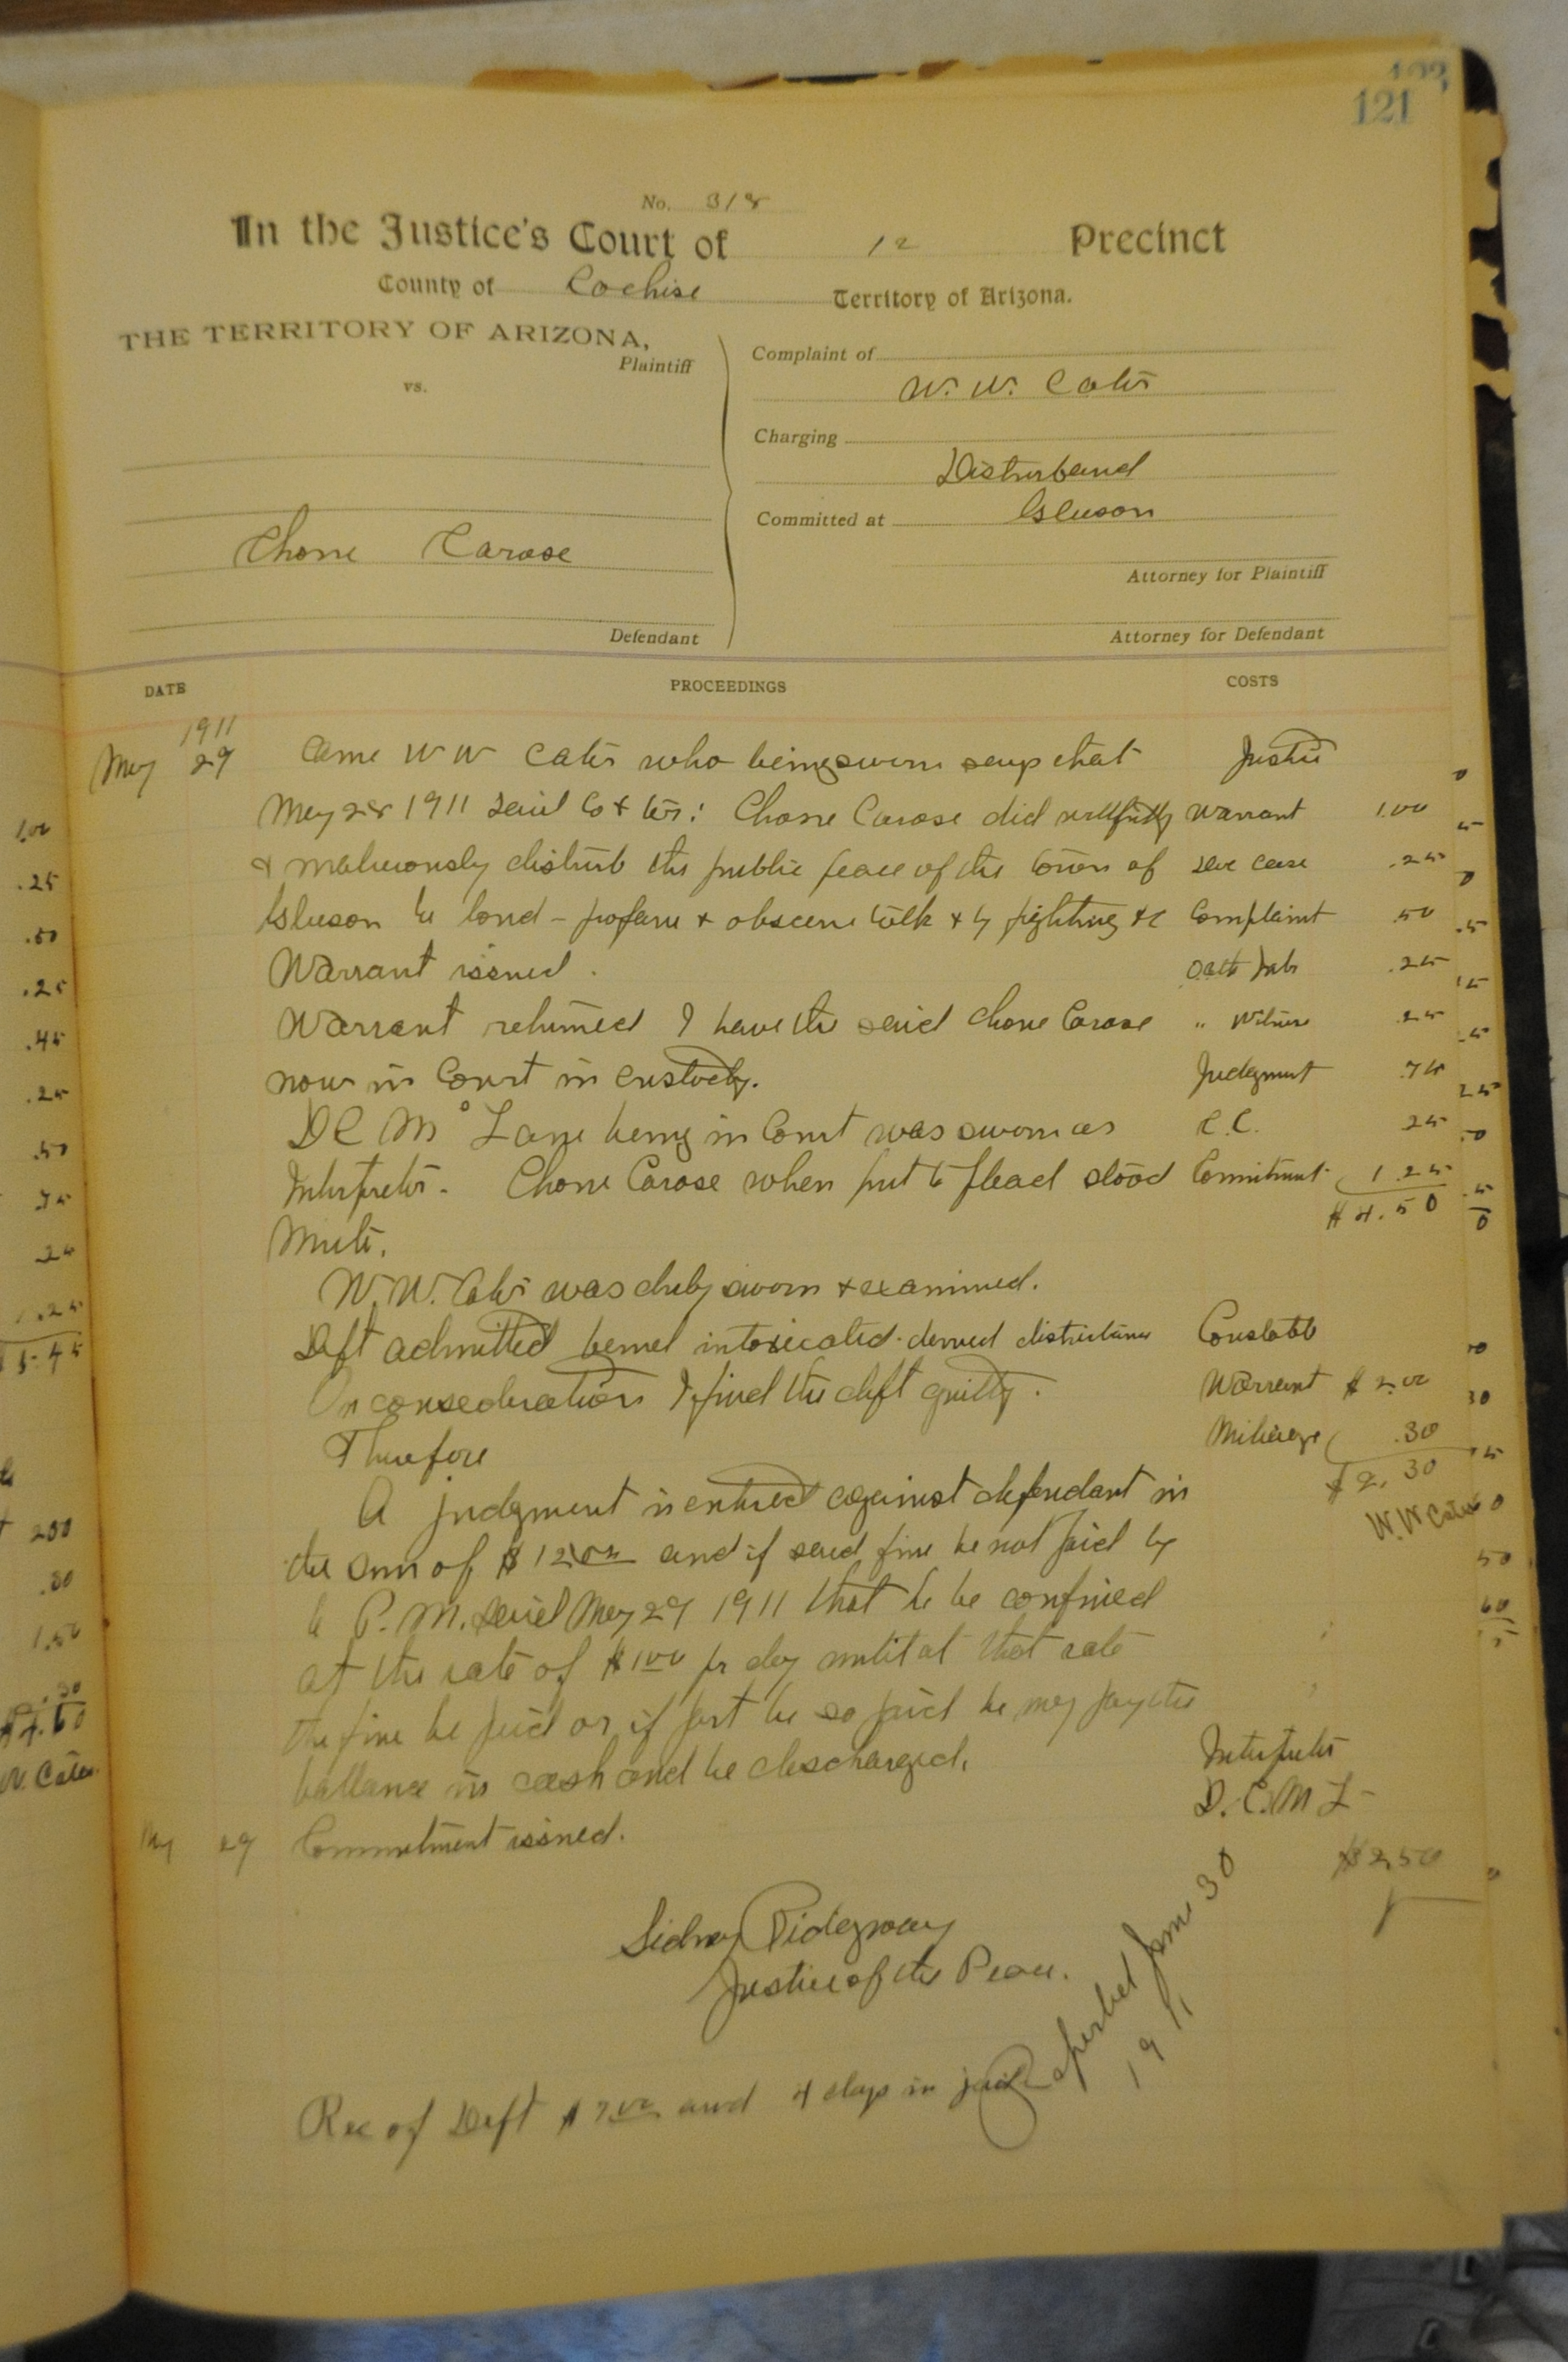 121
No. 318
In the Justice's Court of 12 Precinct
County of Cochise Territory of Arizona.
THE TERRITORY OF ARIZONA,
Plaintiff
vs.
Chone Carase
Defendant
Complaint of
W. W. Cates
Charging
Disturband
Committed at Gleeson
Attorney for Plaintiff
Attorney for Defendant
DATE PROCEEDINGS COSTS
1911
May 29 Came W W Cates who being sworn says that Justice
May 28 1911 said Co & Ter: Chone Carase did willfully Warrant 1.00
& maliciously disturb the public peace of the town of case .25
Gleeson by loud - profane & obscene talk & by fighting &c Complaint .50
Warrant issued. Oath .25
Warrant returned I have the said Chone Carase " Witness .25
now in Court in custody. Judgment .75
D C Mc Lane being in Court was sworn as C.C. 25
Interpreter. Chone Carase when put to plead stood Comitment 1.25
$4.50
Mute.
W. W. Cates was duly sworn & examined.
Deft admitted being intoxicated - denied disturbance Constable
On consideration I find the deft guilty. Warrant $2.00
Therefore Mileage .30
$2.30
A judgment is entered against defendant in W. W Cates
the sum of $12.00 and if said fine be not paid by
6 P. M. said May 29 1911 that he be confined
at the rate of $1.00 pr day until at that rate
the fine be paid or if part be so paid he may pay the
ballance in cash and be discharged. Interpreter
D. C. M L -
May 29 Commitment issued.
$2.50
Sidney Ridgway
Justice of the Peace.
Rec of Deft $7.00 and 4 days in jail
June 30
1911
1.00
.25
.50
.25
.45
.25
.50
.75
.25
1.25
200
.30
1.50
.30